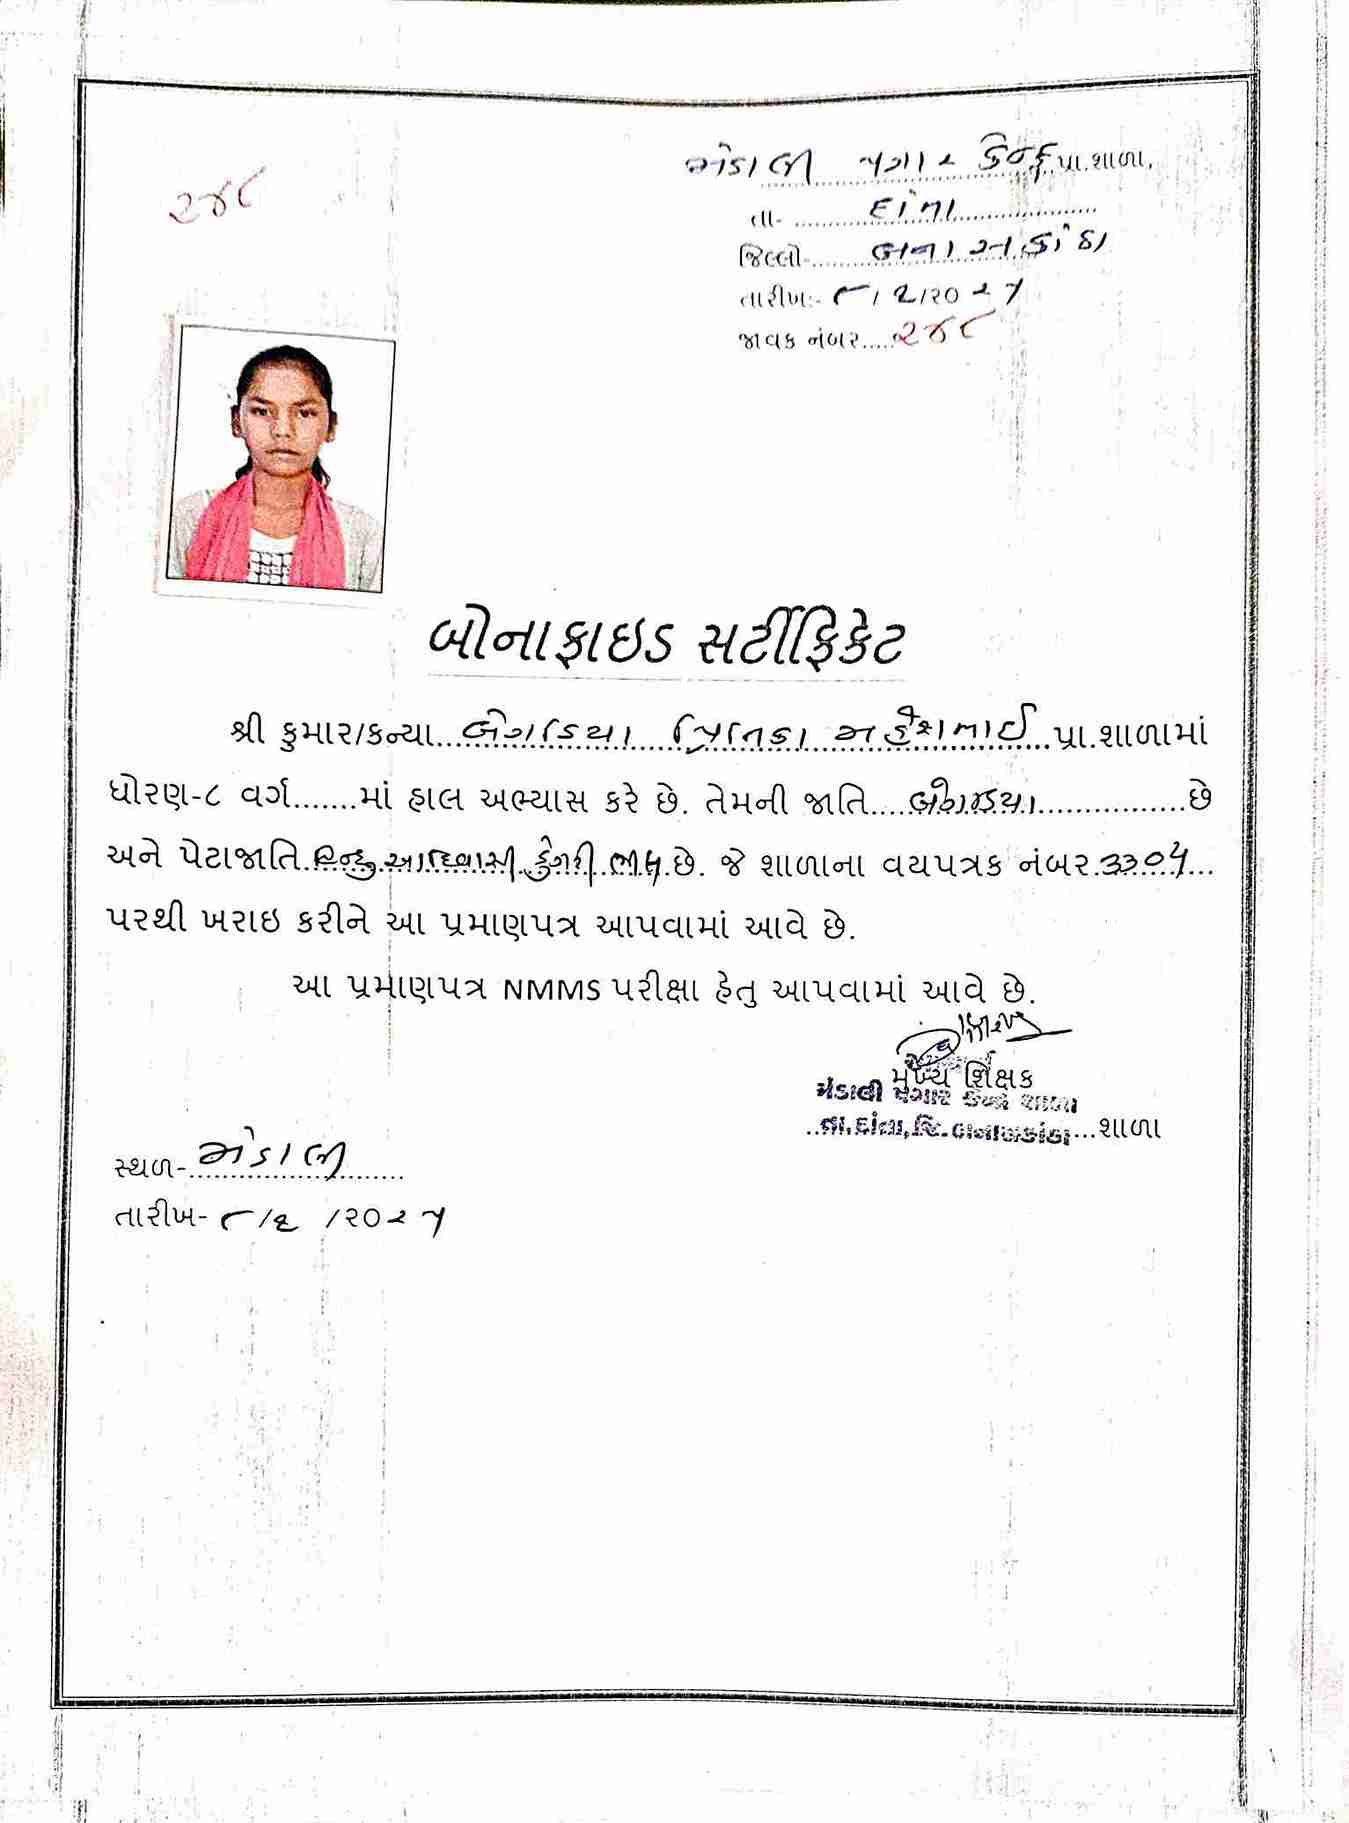 મંડાલી પગાર કેન્દ્ર પ્રા.શાળા,
૨૪૮
તા- દાંતા
જિલ્લો- બનાસકાંઠા
તારીખ:- ૯/૨/૨૦૨૫
જાવક નંબર.....૨૪૮
બોનાફાઇડ સર્ટીફિકેટ
શ્રી કુમાર/કન્યા બેગડિયા પ્રિતિકા મહેશભાઈ પ્રા.શાળામાં
ધોરણ-૮ વર્ગ.......માં હાલ અભ્યાસ કરે છે. તેમની જાતિ બેગડિયા છે
અને પેટાજાતિ હિન્દુ આદિવાસી ડુંગરી ભીલ છે. જે શાળાના વયપત્રક નંબર ૩૩૦૫
પરથી ખરાઇ કરીને આ પ્રમાણપત્ર આપવામાં આવે છે.
આ પ્રમાણપત્ર NMMS પરીક્ષા હેતુ આપવામાં આવે છે.
મુખ્ય શિક્ષક
મંડાલી પગાર કેન્દ્ર શાળા
તા.દાંતા, જિ.બનાસકાંઠા...શાળા
સ્થળ- મંડાલી
તારીખ- ૯/૨/૨૦૨૫